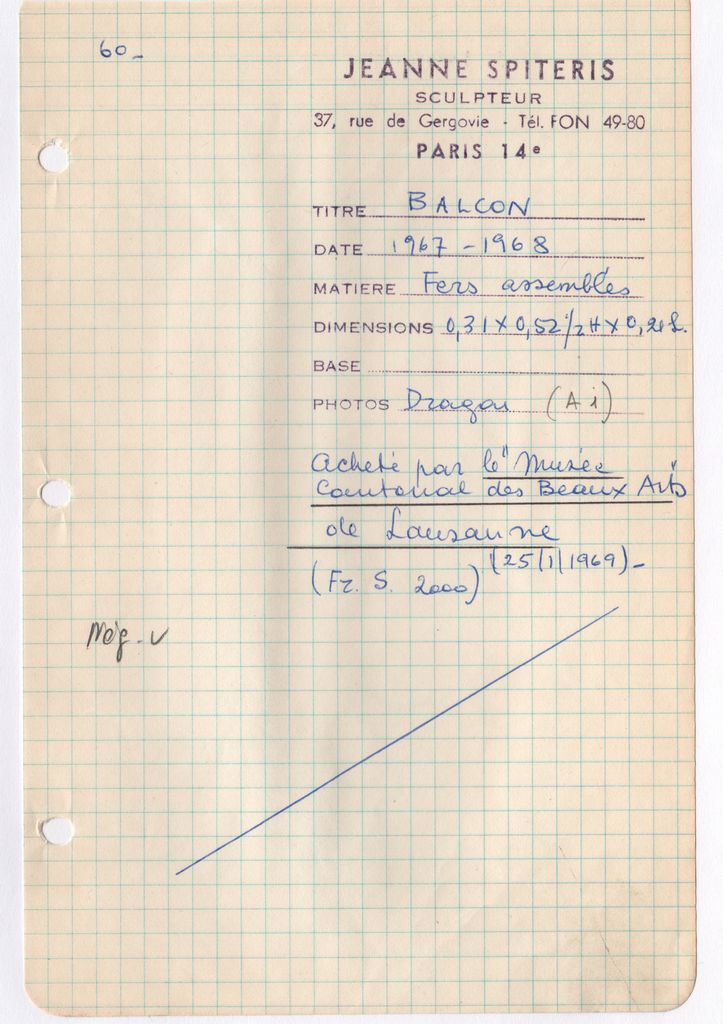 60-
JEANNE SPITERIS
SCULPTEUR
37, rue de Gergovie - Tél. FON 49-80
PARIS 14e
TITRE BALCON
DATE 1967 - 1968
MATIERE Fers assemblés
DIMENSIONS 0,31 x 0,52 1/2 H x 0,21 L.
BASE
PHOTOS Dragon (A i)
Acheté par le "Musée
Cantonal des Beaux Arts"
de Lausanne
(25/1/1969)-
(Fr. S. 2000)
Nég. v